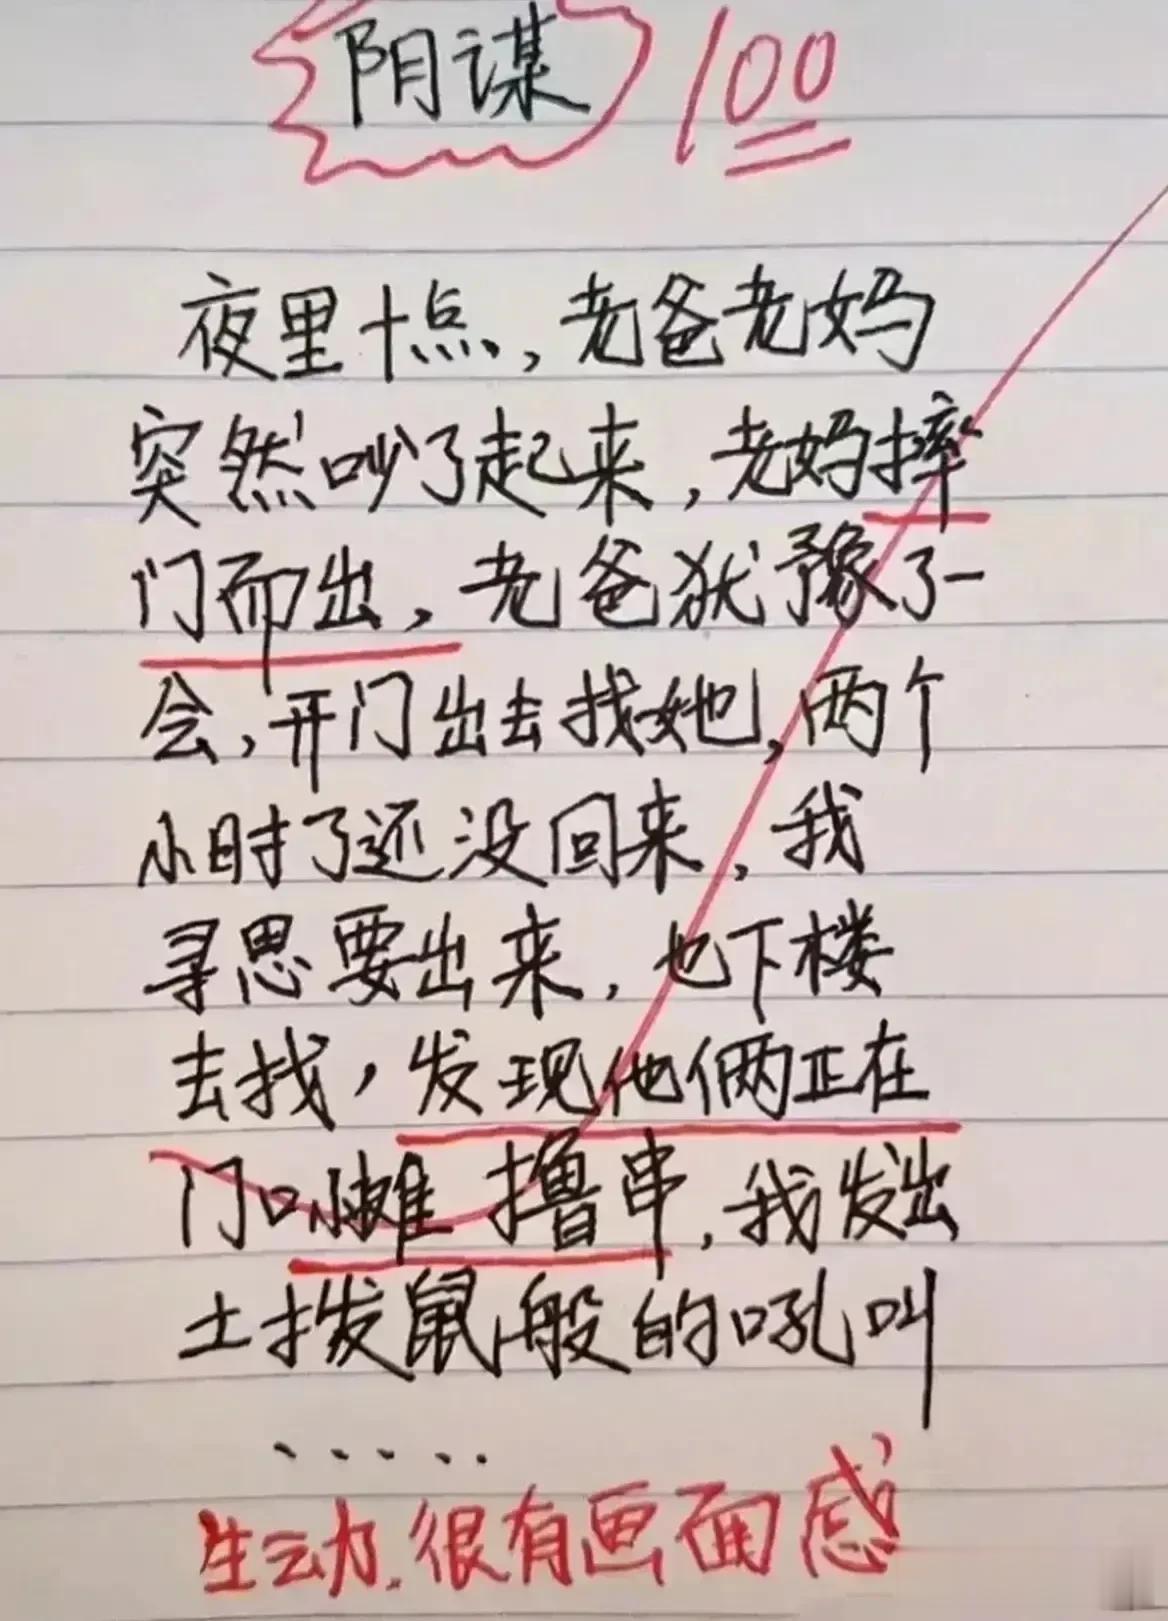 阴谋 100
夜里十点,老爸老妈
突然吵了起来,老妈摔
门而出,老爸犹豫了一
会,开门出去找她,两个
小时了还没回来,我
寻思要出来,也下楼
去找,发现他俩正在
门口小摊撸串,我发出
土拨鼠般的吼叫
.....
生动.很有画面感